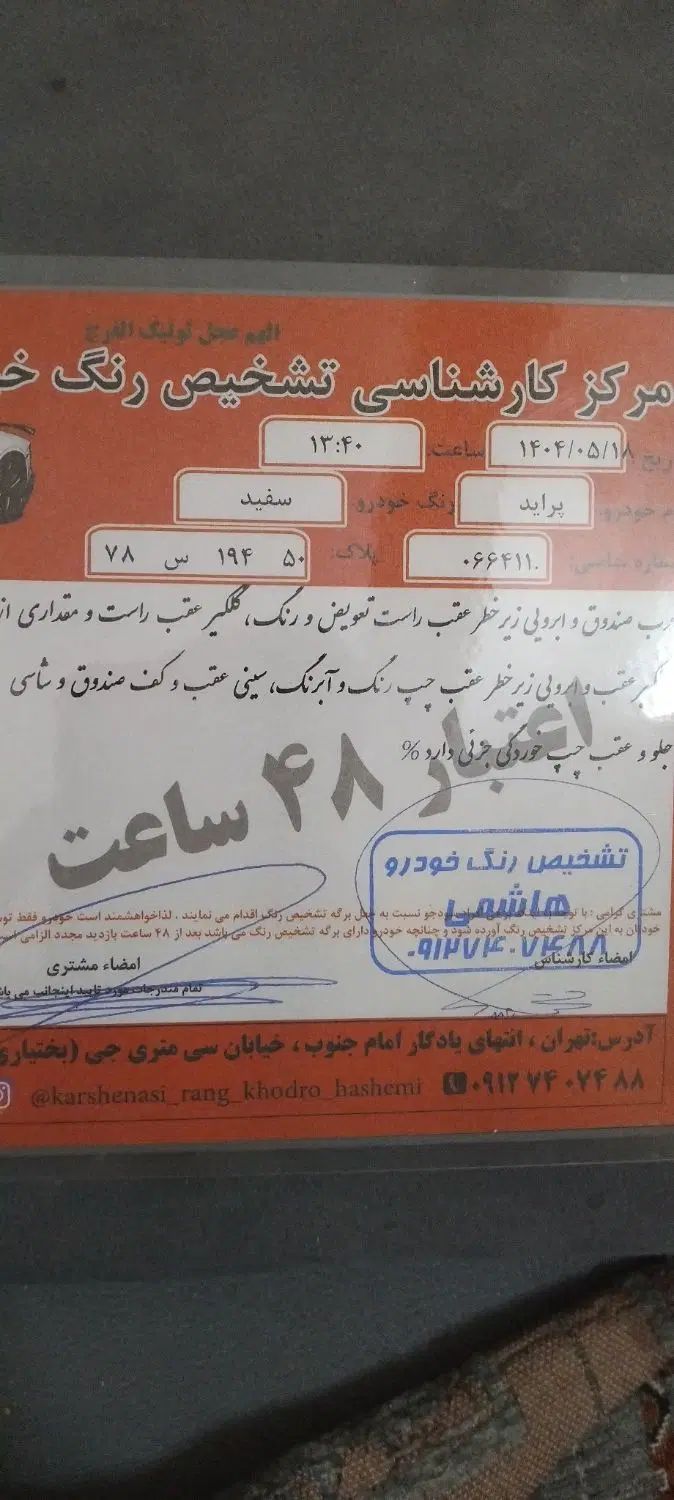 اللهم عجل لولیک الفرج
مرکز کارشناسی تشخیص رنگ خ
ریخ ۱۴۰۴/۰۵/۱۸ ساعت: ۱۳:۴۰
م خودرو: پراید رنگ خودرو: سفید
ماره شاسی: ۰۶۶۴۱۱۰ پلاک: ۵۰ ۱۹۴ س ۷۸
درب صندوق و ابرویی زیر خطر عقب راست تعویض و رنگ، گلگیر عقب راست و مقداری از
گلگیر عقب و ابرویی زیر خطر عقب چپ رنگ و آبرنگ، سینی عقب و کف صندوق و شاسی
جلو و عقب چپ خوردگی جزئی دارد %
اعتبار ۴۸ ساعت
تشخیص رنگ خودرو
هاشمی
۰۹۱۲۷۴۰۷۴۸۸
مشتری گرامی : با توجه به نسبت به جعل برگه تشخیص رنگ اقدام می نمایند . لذاخواهشمند است خودرو فقط توس
خودتان به این مرکز تشخیص رنگ آورده شود و چنانچه خودرو دارای برگه تشخیص رنگ می باشد بعد از ۴۸ ساعت بازدید مجدد الزامی است
امضاء کارشناس
امضاء مشتری
تمام مندرجات مورد تایید اینجانب می باش
آدرس:تهران ، انتهای یادگار امام جنوب ، خیابان سی متری جی (بختیاری
@karshenasi_rang_khodro_hashemi ۰۹۱۲ ۷۴ ۰۷۴ ۸۸